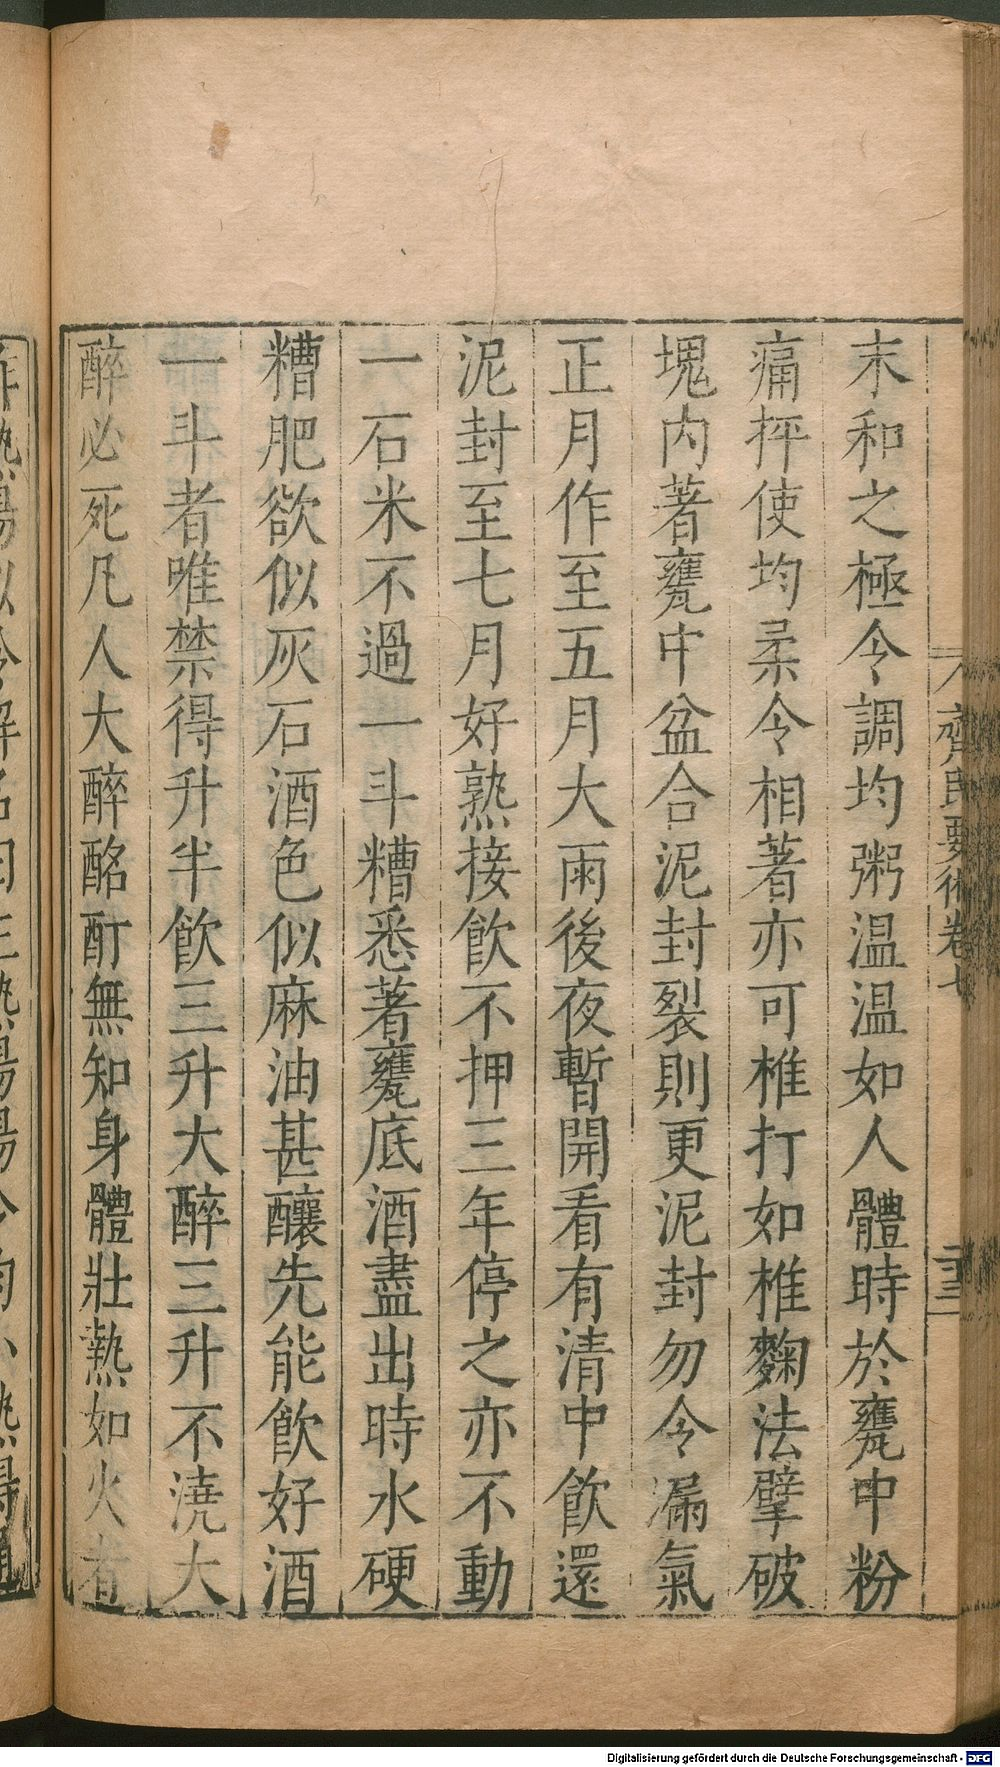 齊民要術卷七
二十三
末和之極令調均粥温温如人體時於甕中粉
痛抨使均柔令相著亦可椎打如椎麴法擘破
塊内著甕中盆合泥封裂則更泥封勿令漏氣
正月作至五月大雨後夜暫開看有清中飲還
泥封至七月好熟接飲不押三年停之亦不動
一石米不過一斗糟悉著甕底酒盡出時水硬
糟肥欲似灰石酒色似麻油甚釀先能飲好酒
一斗者唯禁得升半飲三升大醉三升不澆大
醉必死凡人大醉酩酊無知身體壯熱如火者
Digitalisierung gefördert durch die Deutsche Forschungsgemeinschaft - DFG